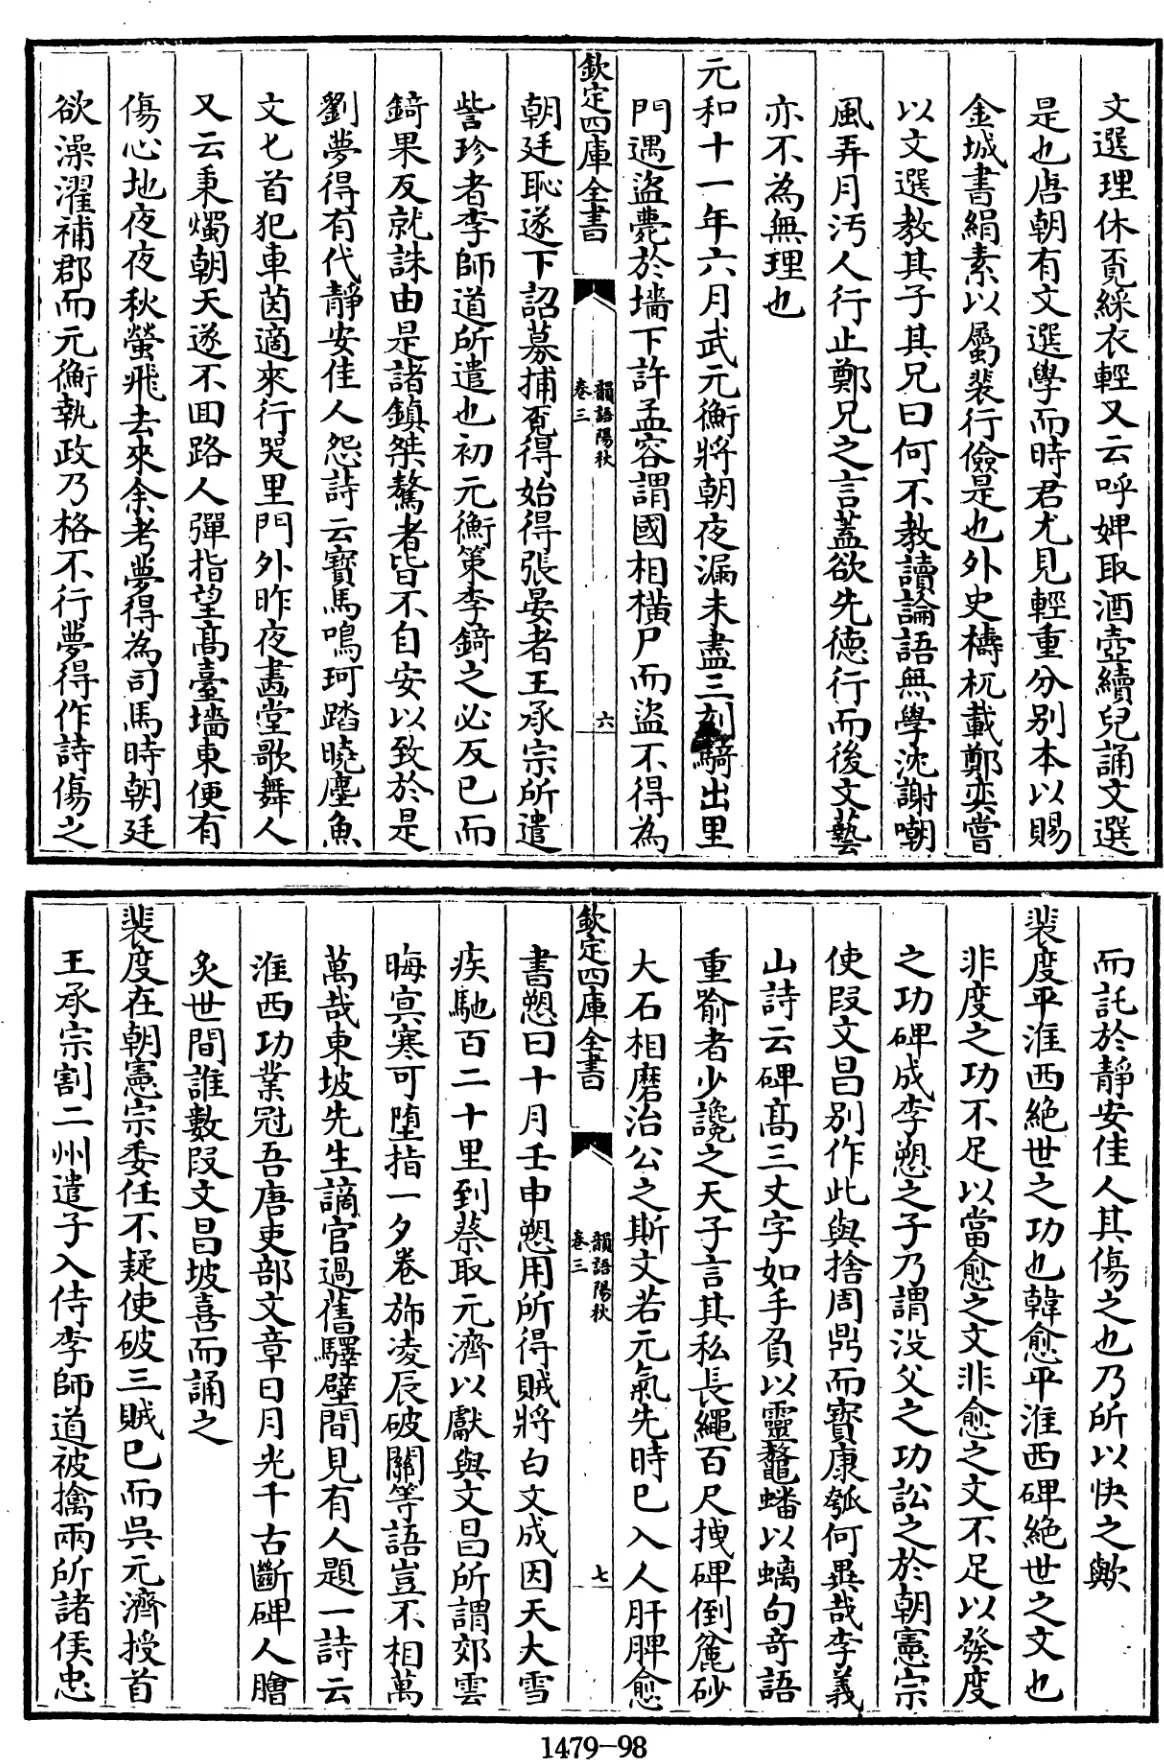 文選理休覓綵衣輕又云呼婢取酒壺續兒誦文選
是也唐朝有文選學而時君尤見輕重分別本以賜
金城書絹素以屬裴行儉是也外史檮杌載鄭奕嘗
以文選教其子其兄曰何不教讀論語無學沈謝嘲
風弄月汚人行止鄭兄之言蓋欲先德行而後文藝
亦不為無理也
元和十一年六月武元衡將朝夜漏未盡三刻騎出里
門遇盜薨於墻下許孟容謂國相橫尸而盜不得為
欽定四庫全書
韻語陽秋
卷三
六
朝廷恥遂下詔募捕竟得始得張晏者王承宗所遣
訾珍者李師道所遣也初元衡策李錡之必反已而
錡果反就誅由是諸鎮桀驁者皆不自安以致於是
劉夢得有代靜安佳人怨詩云寶馬鳴珂踏曉塵魚
文七首犯車茵適來行哭里門外昨夜畫堂歌舞人
又云秉燭朝天遂不回路人彈指望高臺墻東便有
傷心地夜夜秋螢飛去來余考夢得為司馬時朝廷
欲澡濯補郡而元衡執政乃格不行夢得作詩傷之
而託於靜安佳人其傷之也乃所以快之歟
裴度平淮西絕世之功也韓愈平淮西碑絕世之文也
非度之功不足以當愈之文非愈之文不足以發度
之功碑成李愬之子乃謂没父之功訟之於朝憲宗
使段文昌別作此與捨周鼎而寶康瓠何異哉李義
山詩云碑高三丈字如手負以靈鼇蟠以螭句奇語
重喻者少讒之天子言其私長繩百尺拽碑倒麄砂
大石相磨治公之斯文若元氣先時已入人肝脾愈
欽定四庫全書
韻語陽秋
卷三
七
書愬曰十月壬申愬用所得賊將自文成因天大雪
疾馳百二十里到蔡取元濟以獻與文昌所謂郊雲
晦冥寒可墮指一夕卷斾凌辰破關等語豈不相萬
萬哉東坡先生謫官過舊驛壁間見有人題一詩云
淮西功業冠吾唐吏部文章日月光千古斷碑人膾
炙世間誰數段文昌坡喜而誦之
裴度在朝憲宗委任不疑使破三賊已而吳元濟授首
王承宗割二州遣子入侍李師道被擒兩所諸侯忠
1479-98